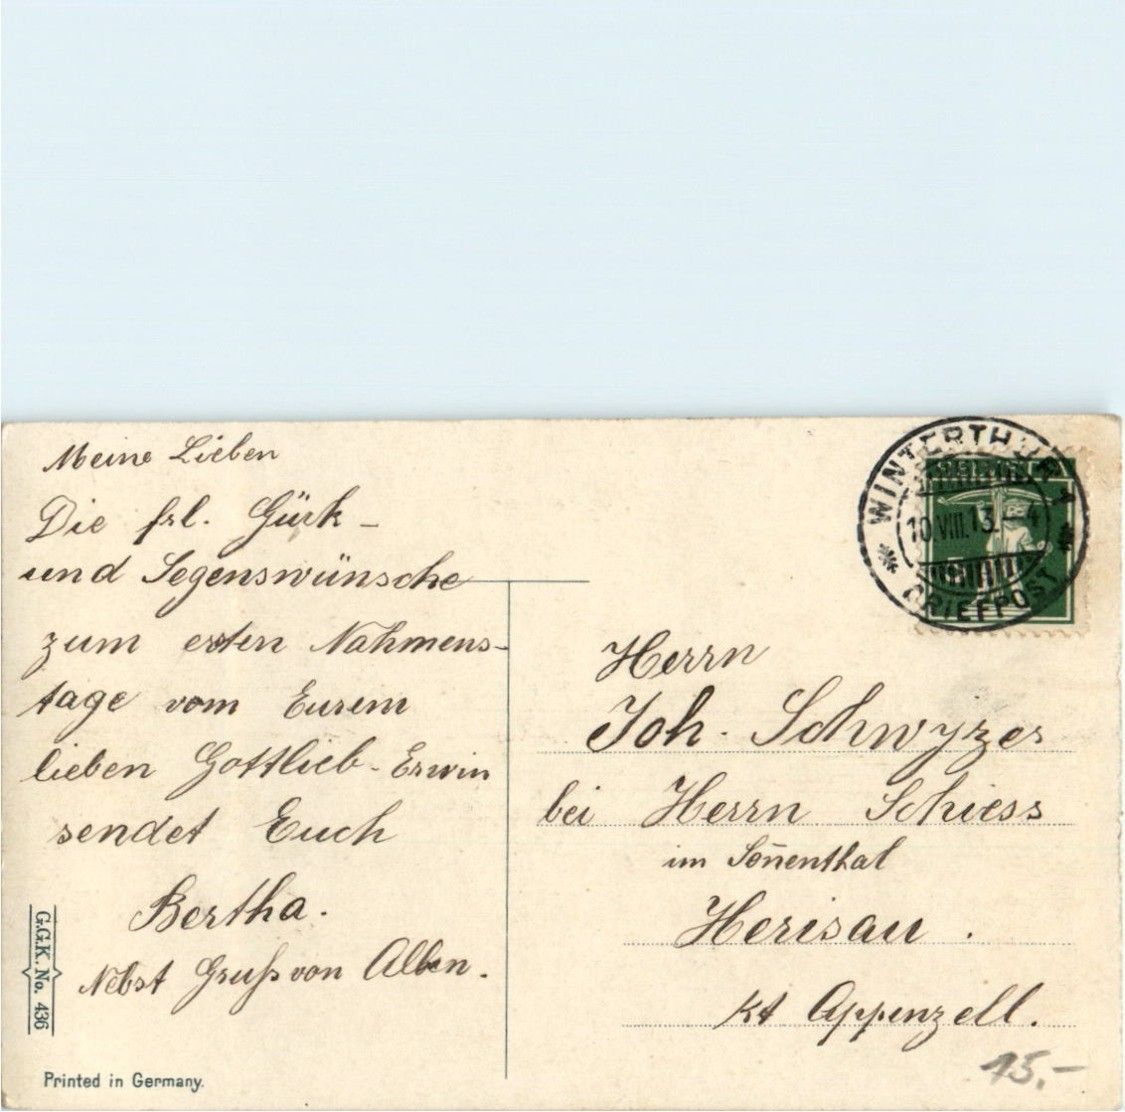 Meine Lieben
Die frl. Gück-
und Segenswünsche
zum ersten Nahmens-
tage vom Eurem
lieben Gottlieb-Erwin
sendet Euch
Bertha.
Nebst Gruss von Allen.
G.G.K. No. 436
Printed in Germany.
WINTERTHUR
10.VIII.13. - 4
BRIEFPOST
Herrn
Joh. Schwyzer
bei Herrn Schiess
im Soñenthal
Herisau.
kt Appenzell.
15.-